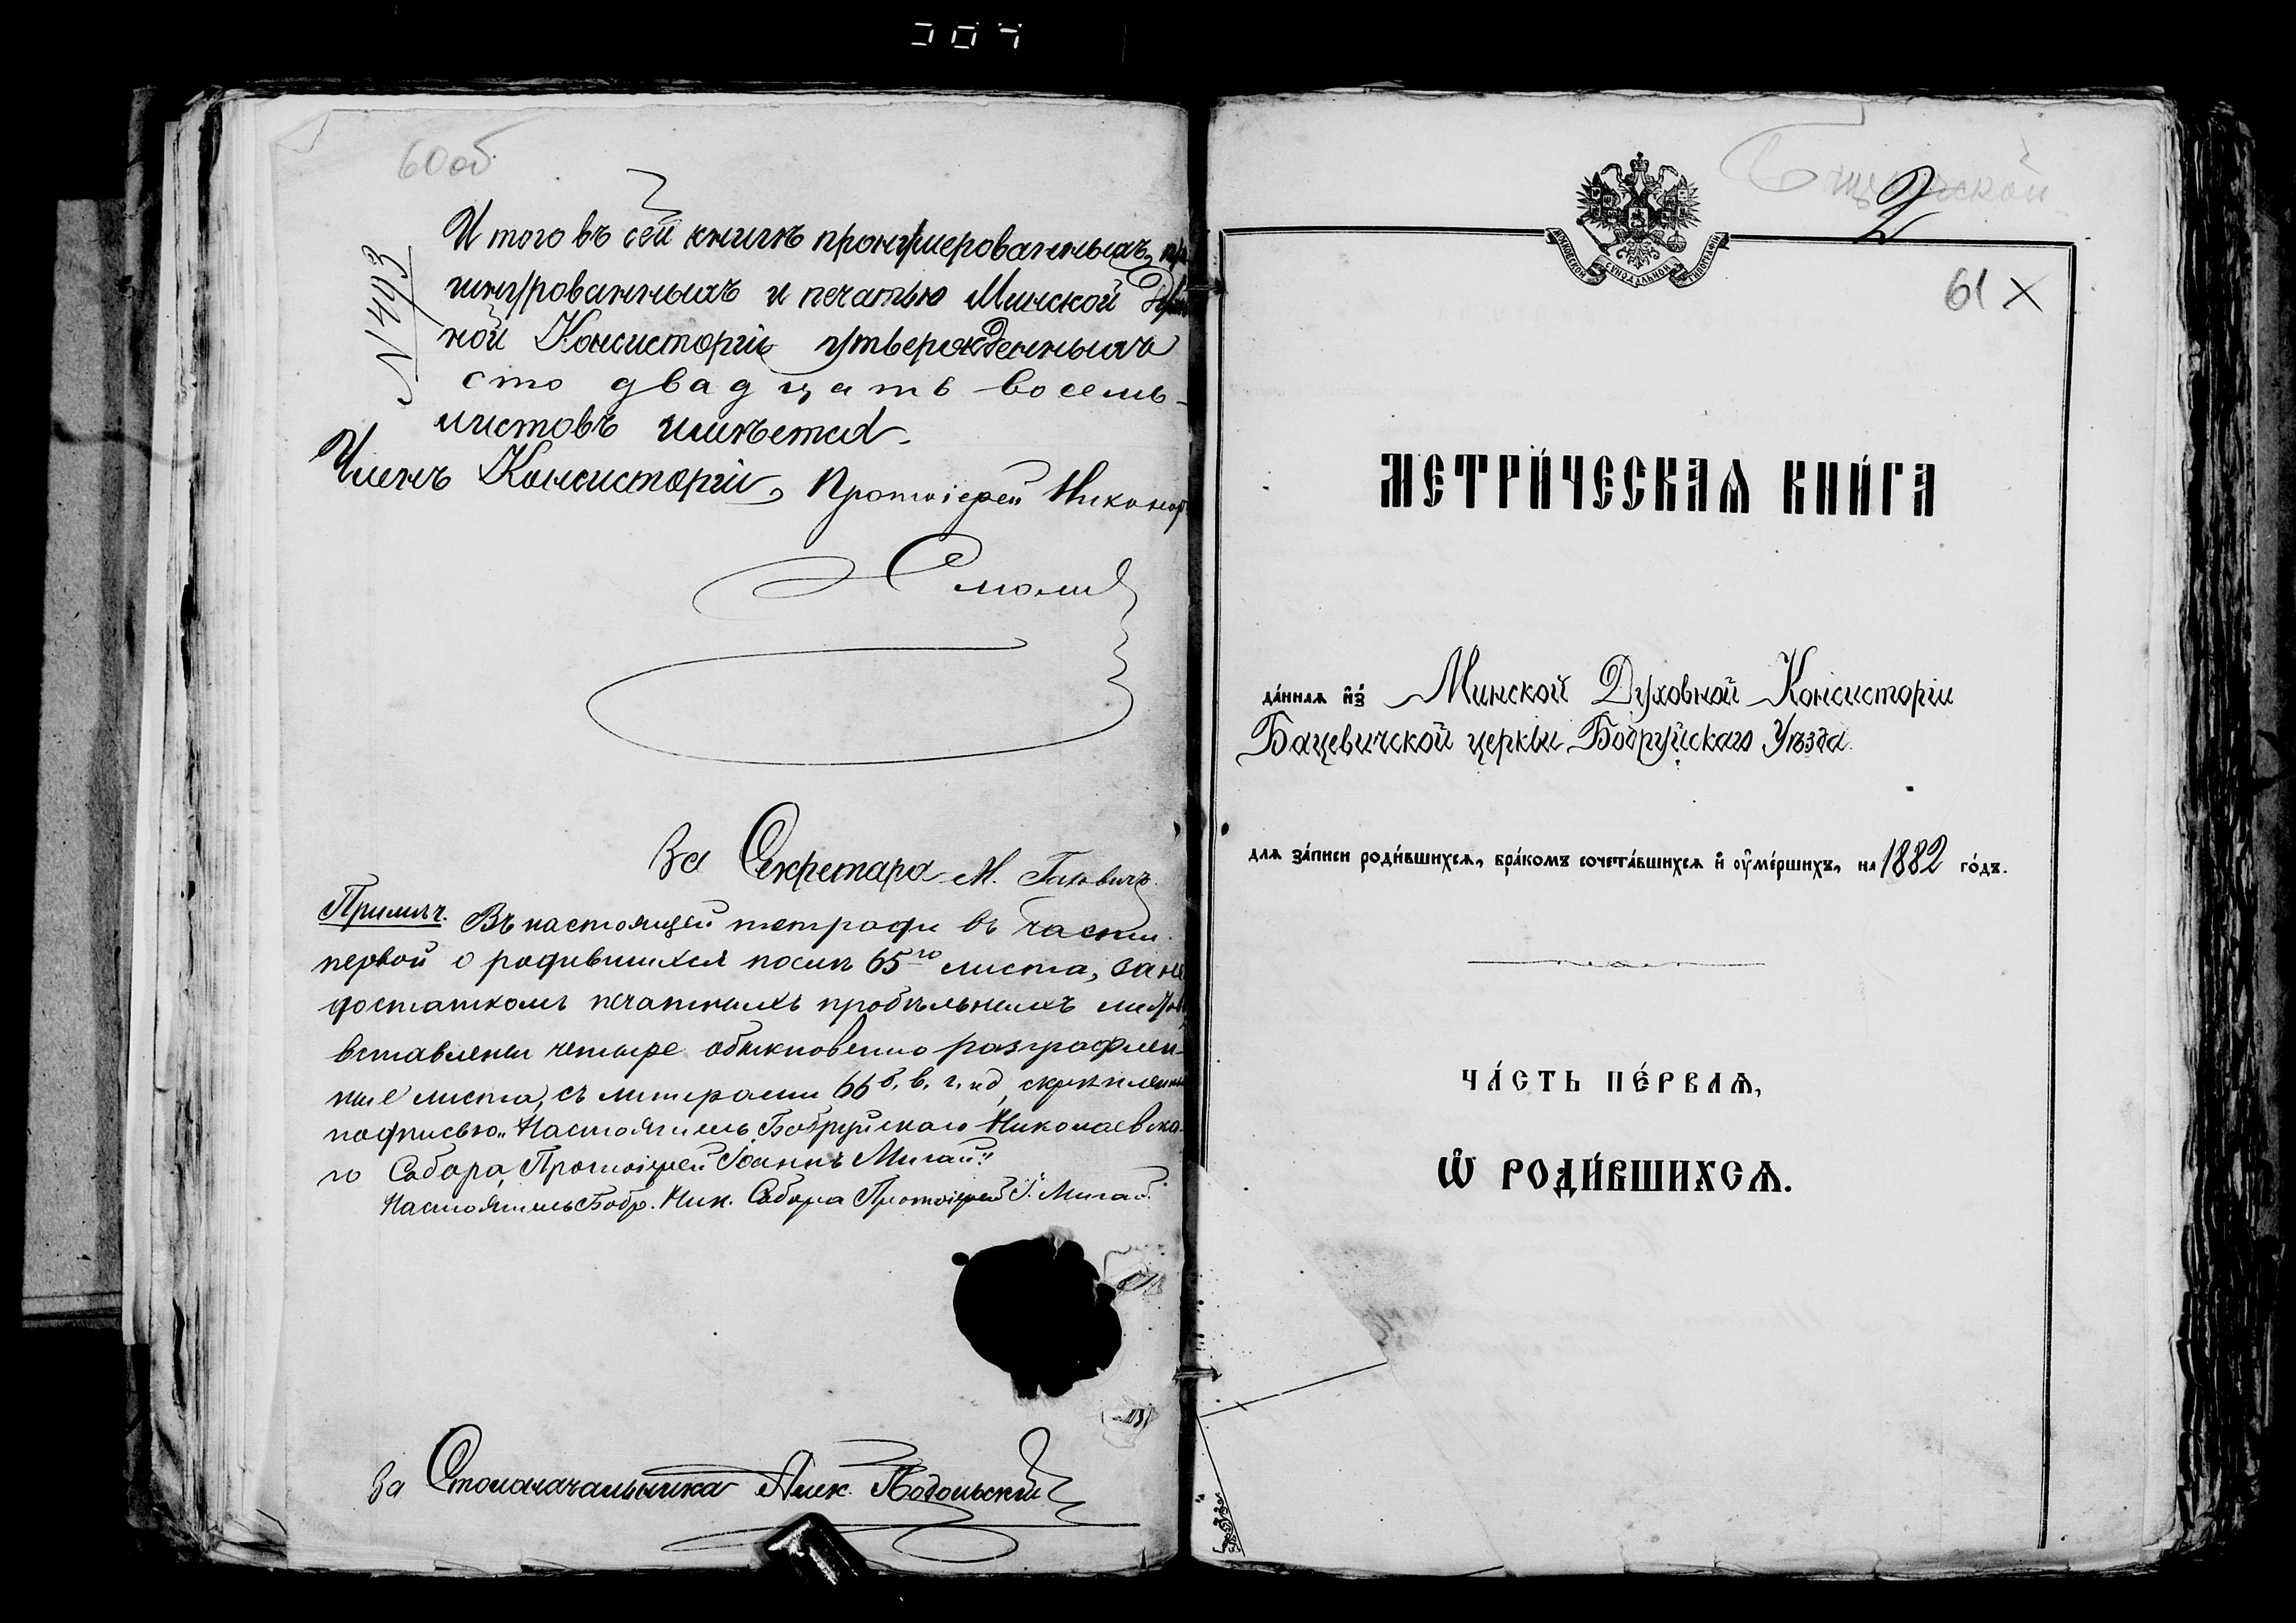 60об
№ 1493
Итого въ сей книгѣ пронумерованныхъ, про
шнурованныхъ и печатью Минской Духов
ной Консисторіи утвержденныхъ
сто двадцать восемь
листовъ имѣется.
Членъ Консисторіи, Протоіерей Никаноръ
Смолич
За Секретаря М.
Примѣч. Въ настоящей тетради въ части
первой о родившихся послѣ 65го листа, за не
достаткомъ печатныхъ пробѣльныхъ листовъ,
вставлены четыре обыкновенно разграфлен-
ные листа, съ литерами 66 б. в. г. и д, скрѣпленные
подписью „Настоятель Бобруйскаго Николаевска-
го Собора, Протоіерей Іоаннъ Мигай“
Настоятель Бобр. Ник. Собора Протоіерей І. Мигай.
За Столоначальника Алек. Подольскій
2
МОСКОВСКОЙ СѴНОДАЛЬНОЙ ТИПОГРАФІИ
61 X
МЕТРИ́ЧЕСКАѦ КНИ́ГА
да́ннаѧ и҆з̾ Минской Духовной Консисторіи
Бацевичской церкви Бобруйскаго Уѣзда
длѧ за́писи роди́вшихсѧ, бра́комъ сочета́вшихсѧ и҆ ѹ҆ме́ршихъ, на 1882 го́дъ.
ЧА́СТЬ ПЕ́РВАѦ,
Ѡ҆ РОДИ́ВШИХСѦ.